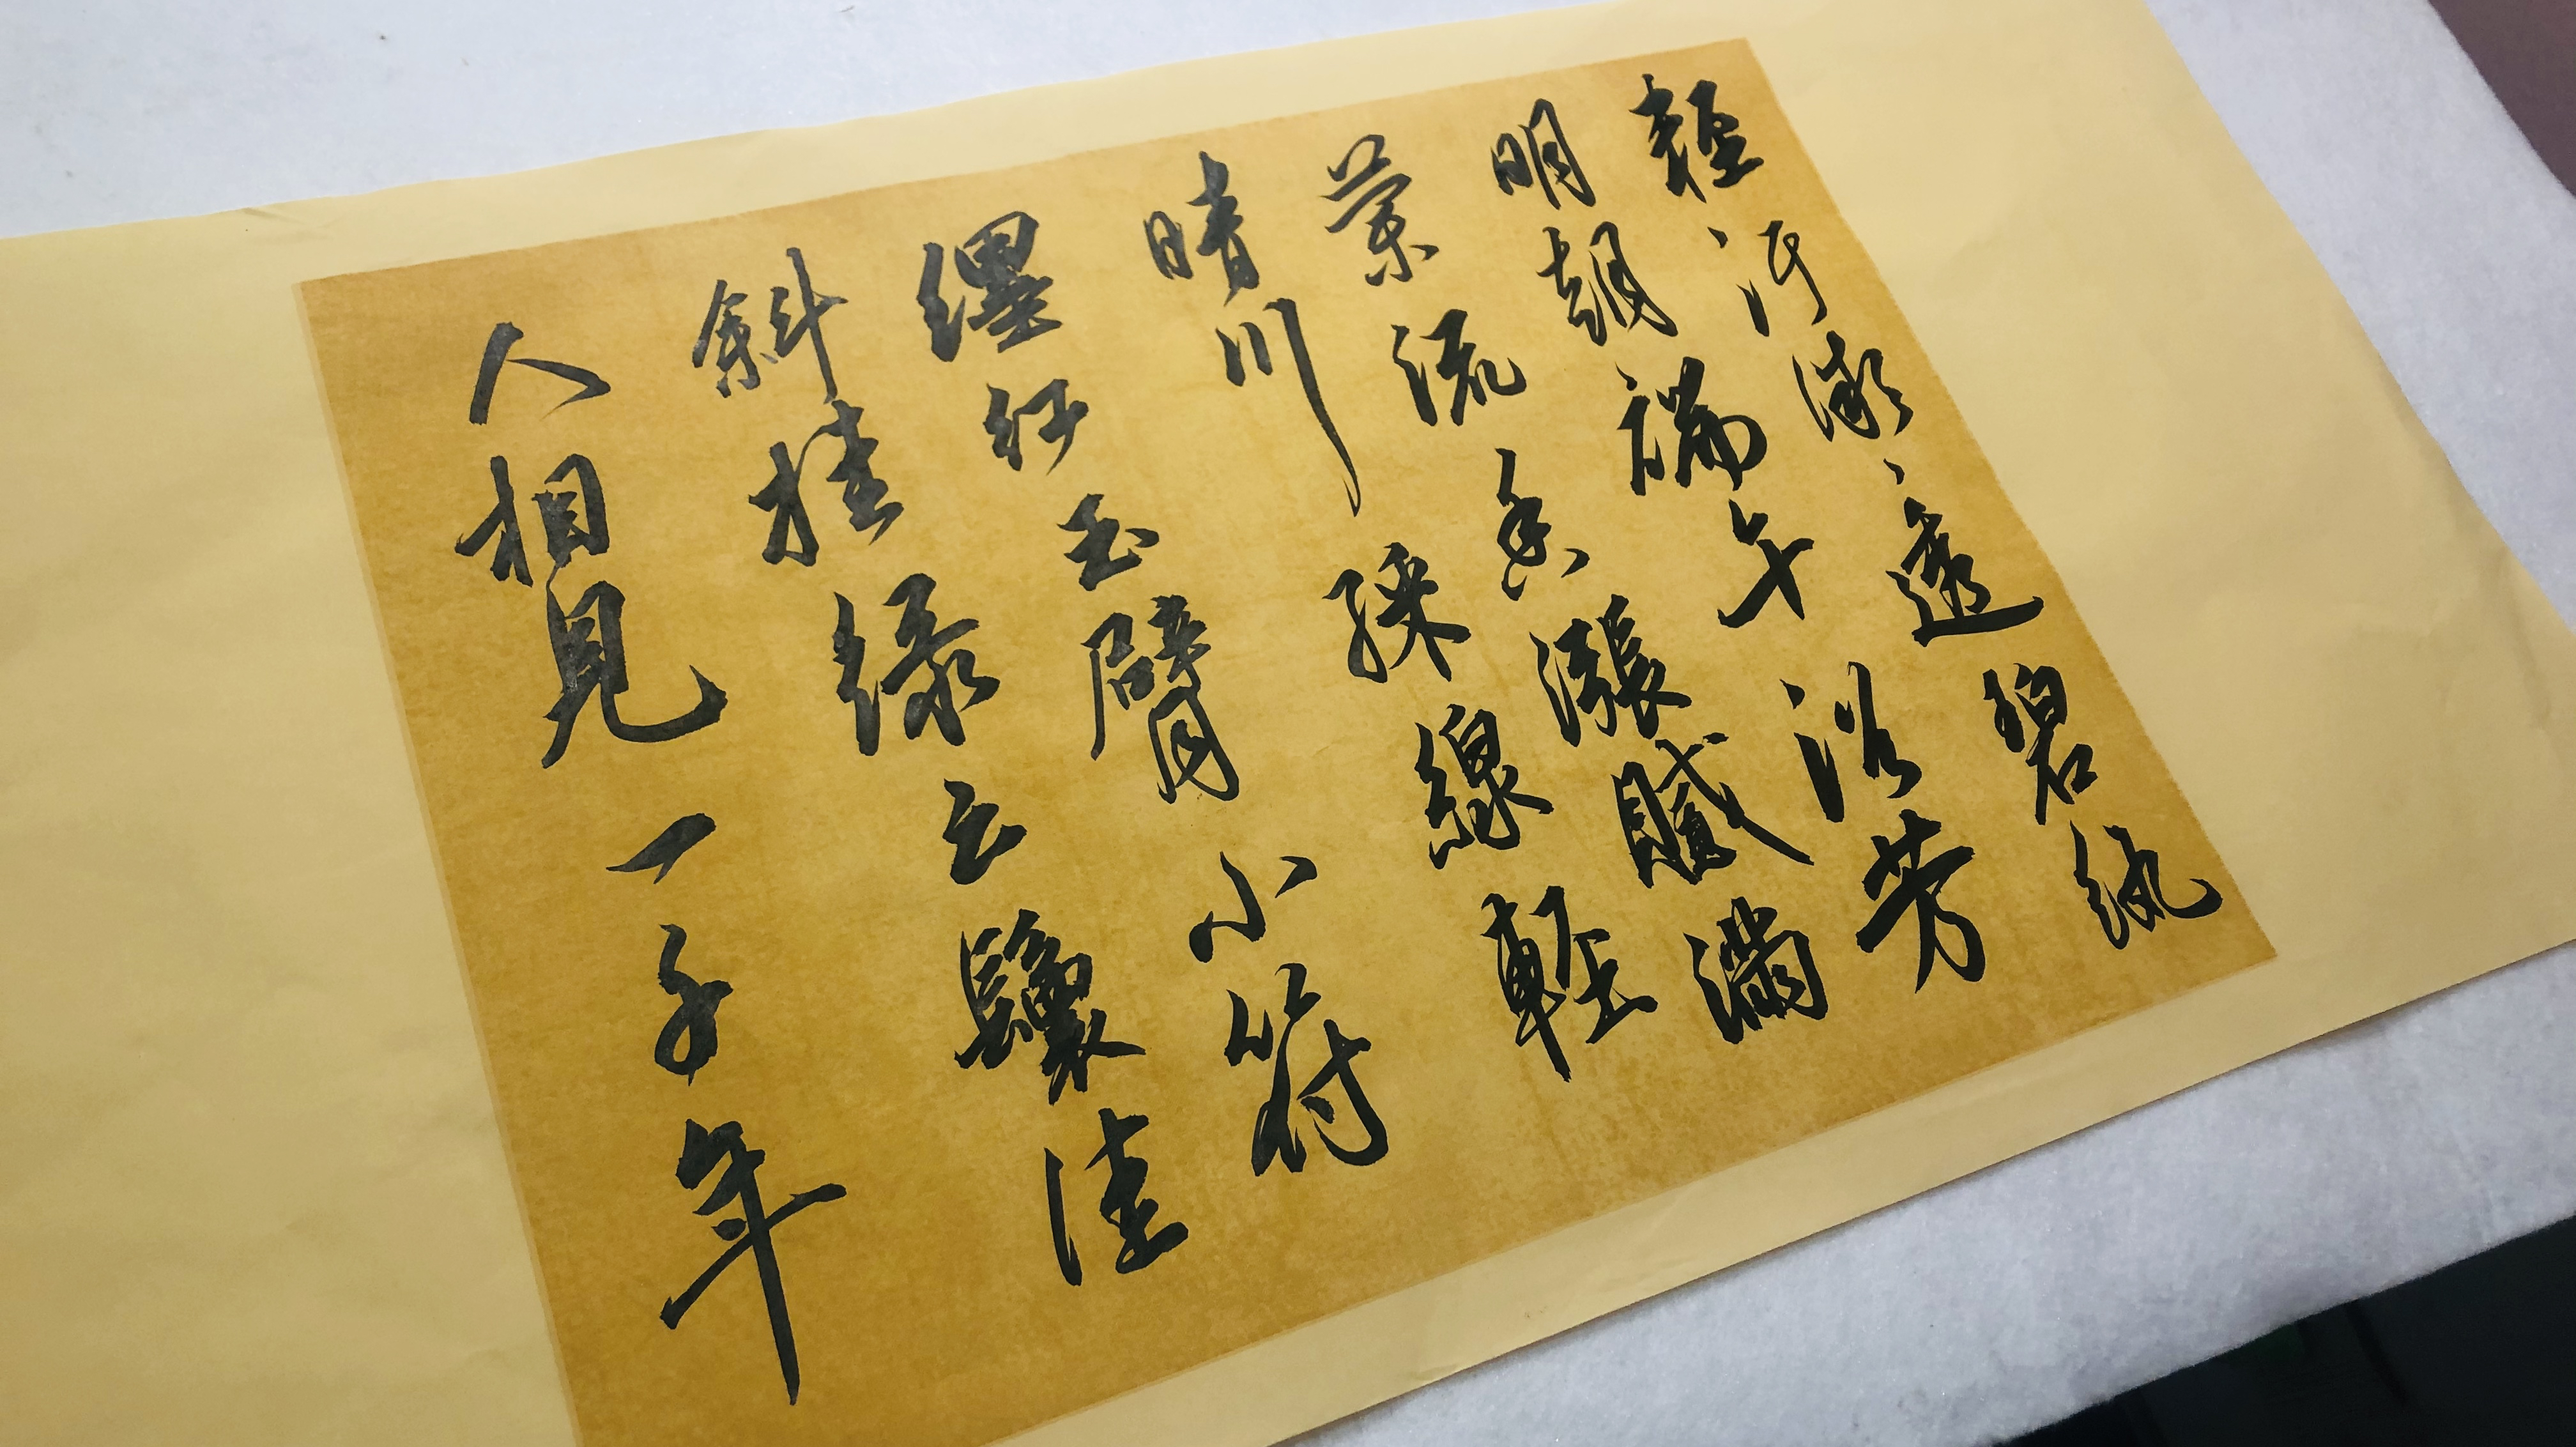 輕汗微、透碧紈
明朝端午浴芳
蘭流香漲膩滿
晴川綵線輕
纏紅玉臂小符
斜挂綠云鬟佳
人相見一千年